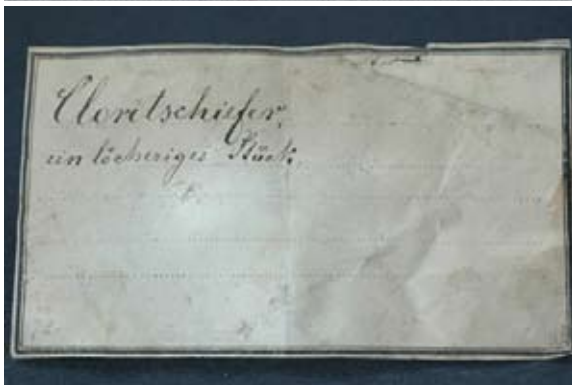 Cloritschiefer,
ein löcheriges Stück.